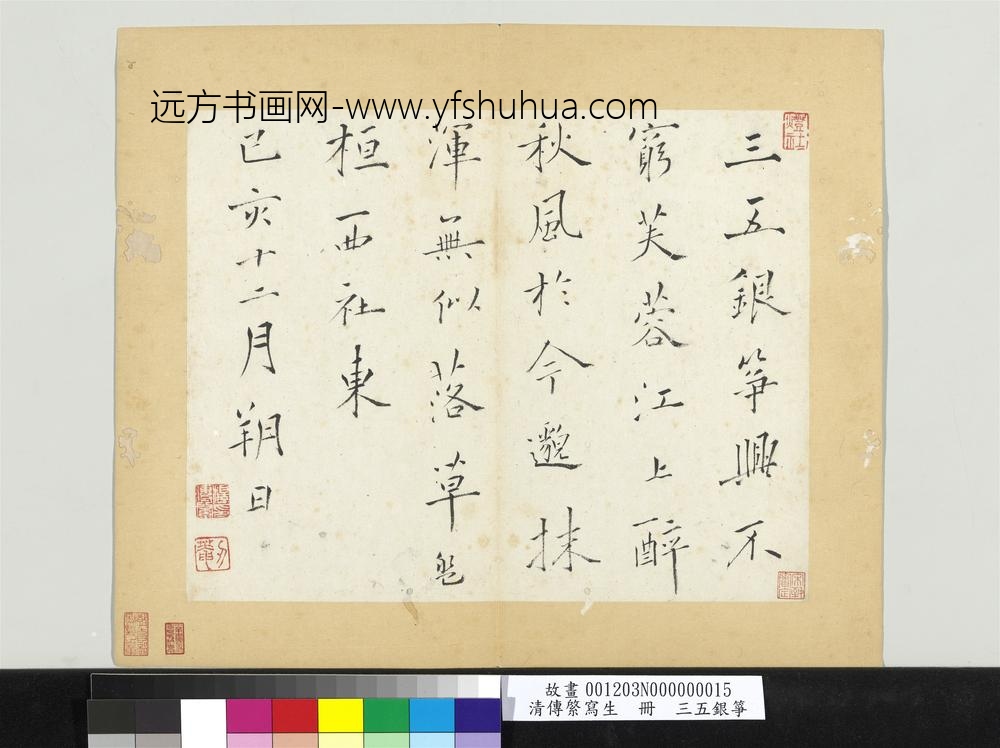 远方书画网-www.yfshuhua.com
三五銀箏興不
窮芙蓉江上醉
秋風於今邈抹
渾無似落草盤
桓西社東
己亥十二月朔日
故畫 001203N000000015
清傳綮寫生 冊 三五銀箏